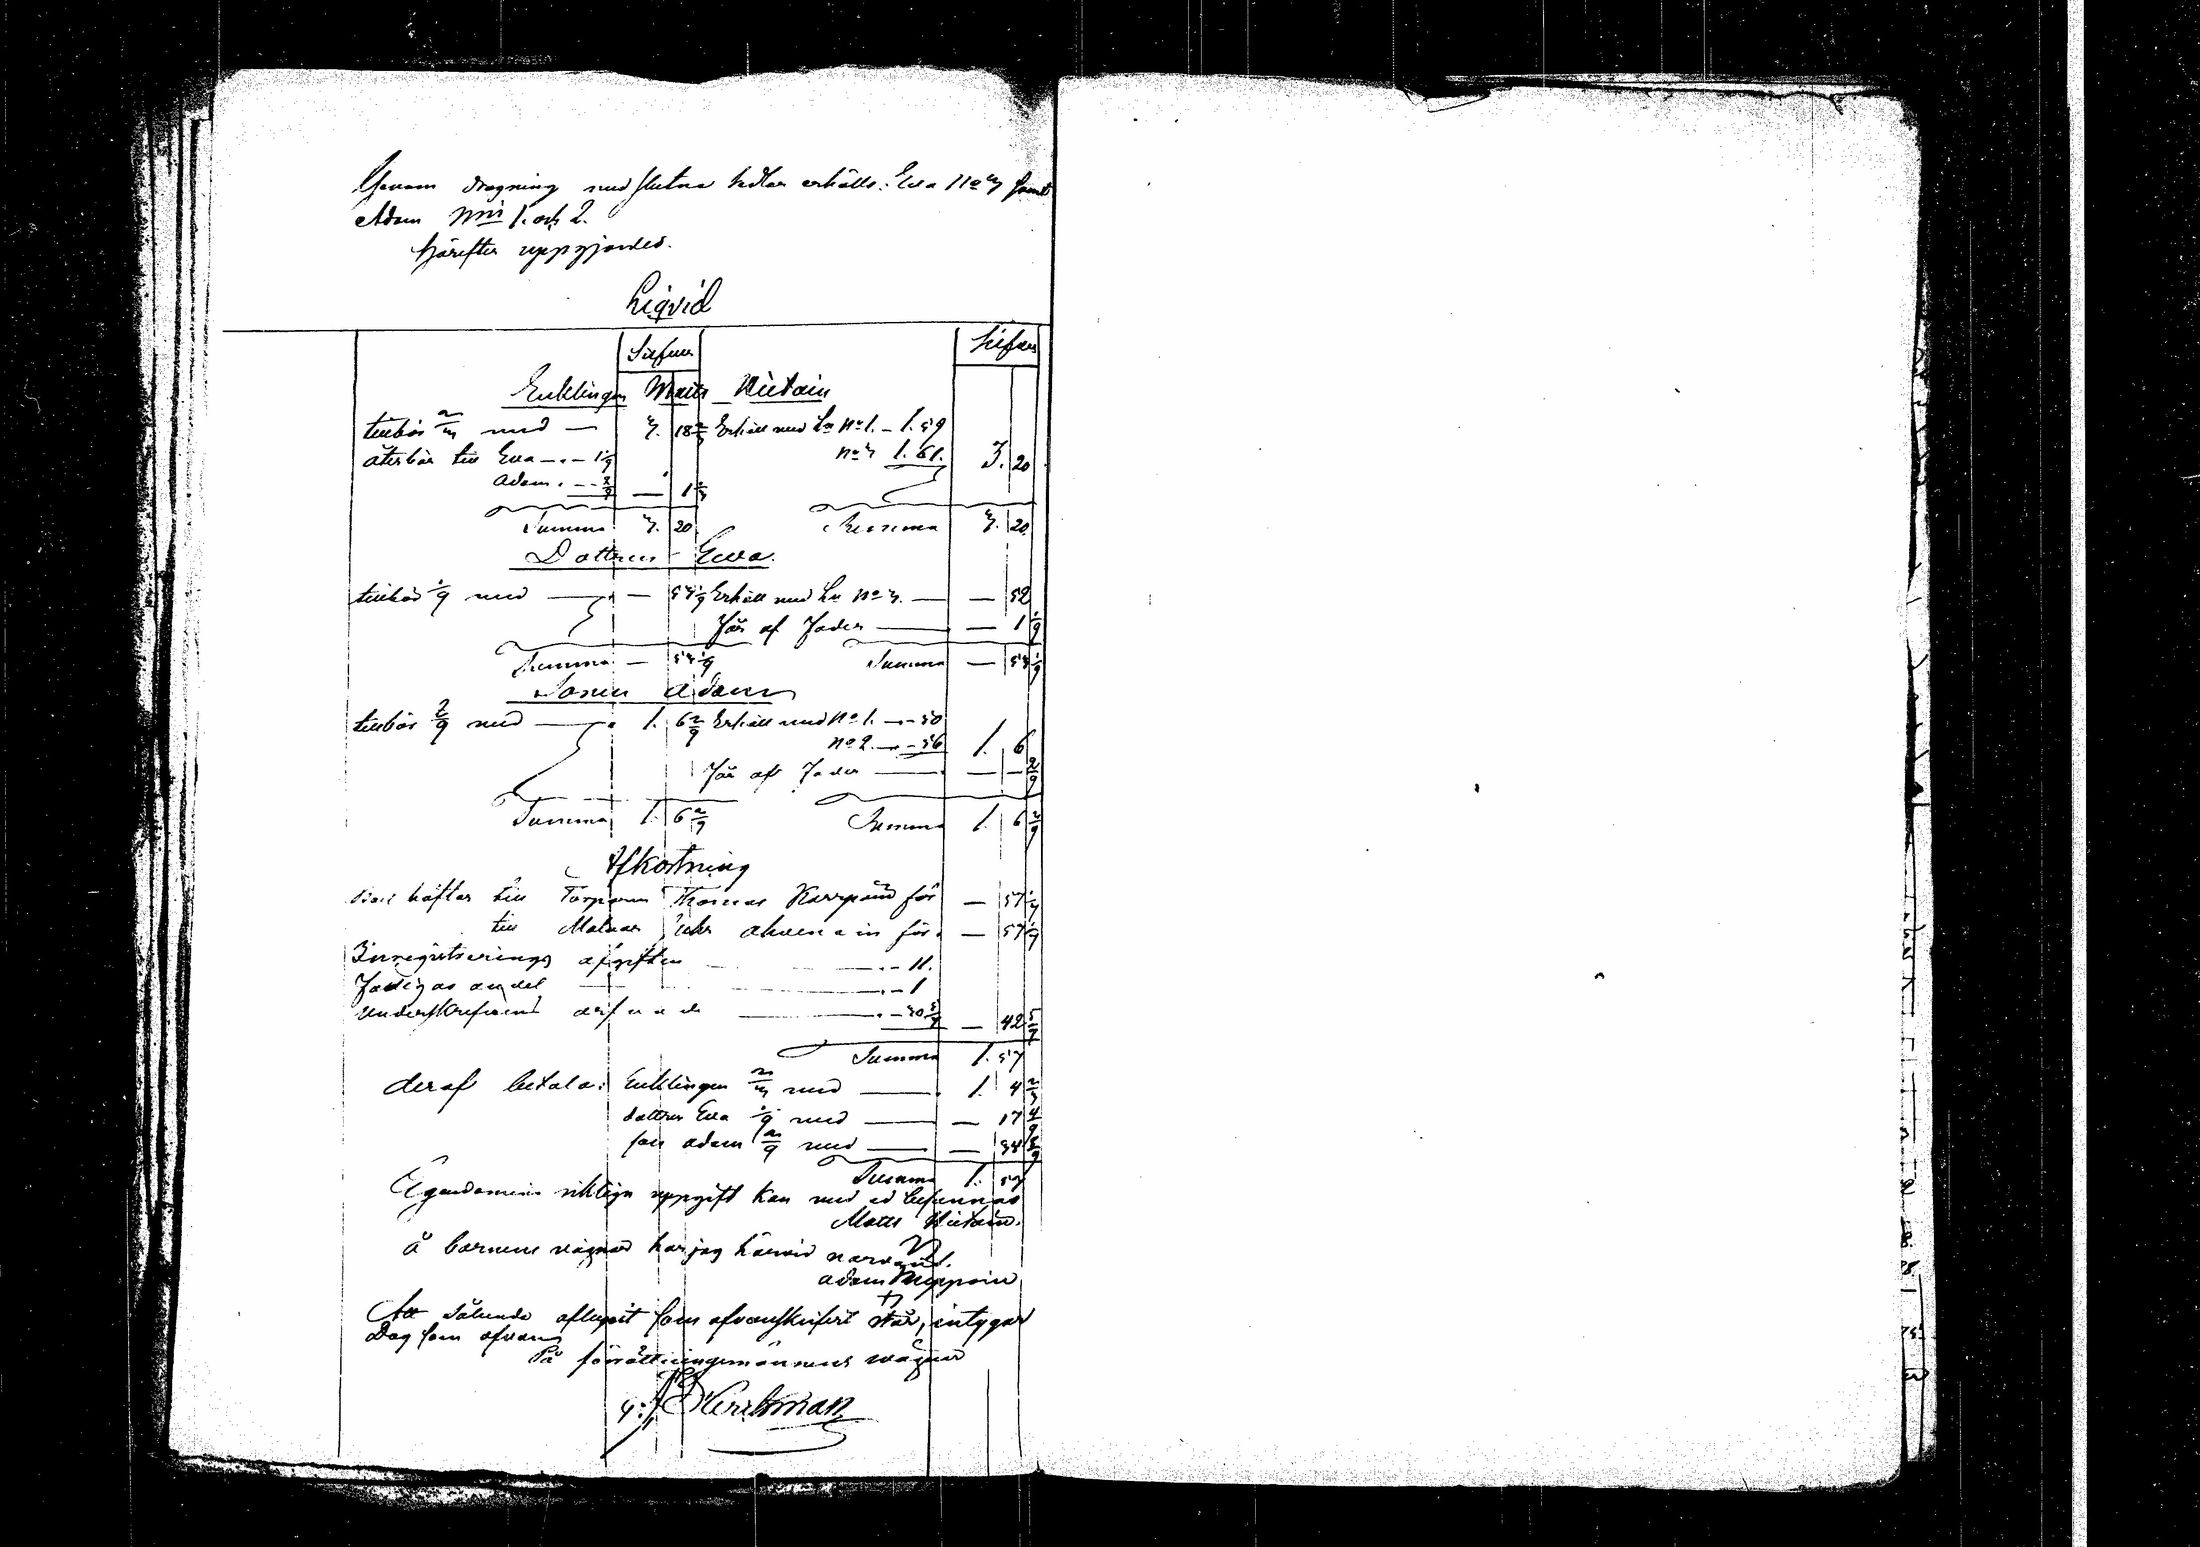 Genom dragning med slutna sedlar erhölls: Eva No 3 samt
Adam Nris 1. och 2.
Härefter uppgjordes.
Liqvid
Silfver Silfver
Enklingen Matts Hietain
tillkör 2/3 med — 3. 18 2/3 Erhåll med Ln No 1. – 1. 59
återbär till Eva — „ – 1 1/9 No 3 1. 61. 3. 20
Adam „ – – 2/9 — 1 1/3
Summa 3. 20 Summa 3. 20
Dottren Eva
tillkör 1/9 med — — 53 1/9 Erhåll med Ln No 3. — — 52
Får af Fader — — 1 1/9
Summa — 53 1/9 Summa — 53 1/9
Sonen Adam
tillkör 2/9 med — 1. 6 2/9 Erhåll med No 1. — – 50
No 2. — – 56 1. 6
Får af Fader — — – 2/9
Summa 1. 6 2/9 Summa 1. 6 2/9
Afkortning
häftar till Torparen Thomas för — 57 1/7
till för — 57 1/7
Inregistrerings afgiften „ – 11.
Fattigas andel „ – 1
Underskrefvens — 42 5/7
Summa 1. 57
deraf betala: Enklingen 2/3 med — 1. 4 2/3
dottren Eva 1/9 med — — 17 4/9
son Adam 2/9 med — — 34 8/9
Summa 1. 57
Egendomens riktiga uppgift kan med ed
Matts Hietain.
å barnens vägnar har jag härvid narvarit.
Adam
Att sålunda aflupit som ofvanskrifvit står, intygar
Dag som ofvan
På förrättningsmännens vägnar